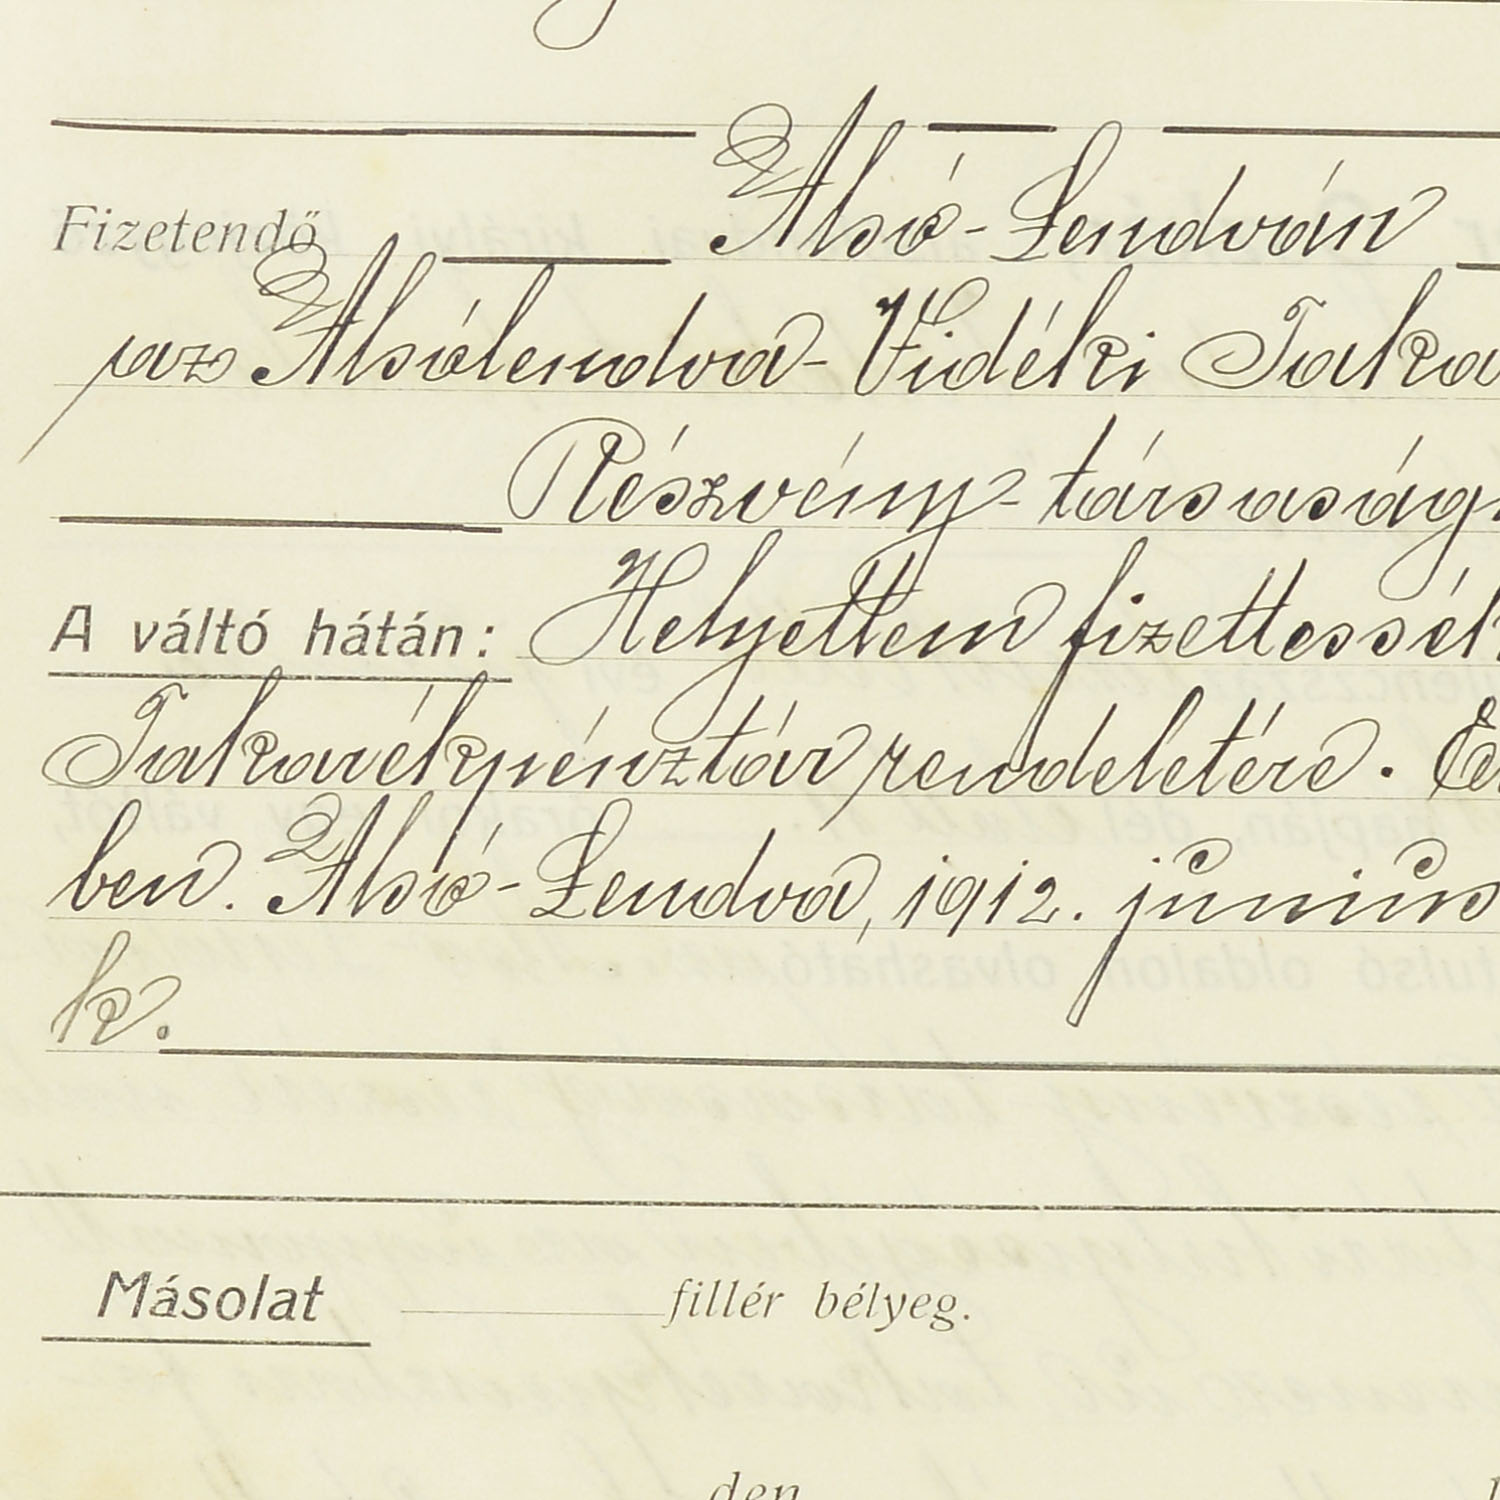 Fizetendő Alsó-Lendván
az Alsólendva-Vidéki Taka
Részvény-társaság
A váltó hátán: Helyettem fizettessék
Takarékpénztár rendeletére. Ér
ben. Alsó-Lendva, 1912. június
k.
Másolat fillér bélyeg.
den